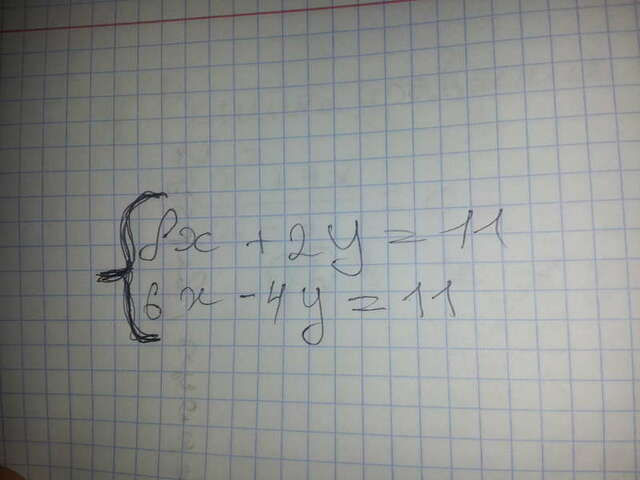 8x + 2y = 11
6x - 4y = 11